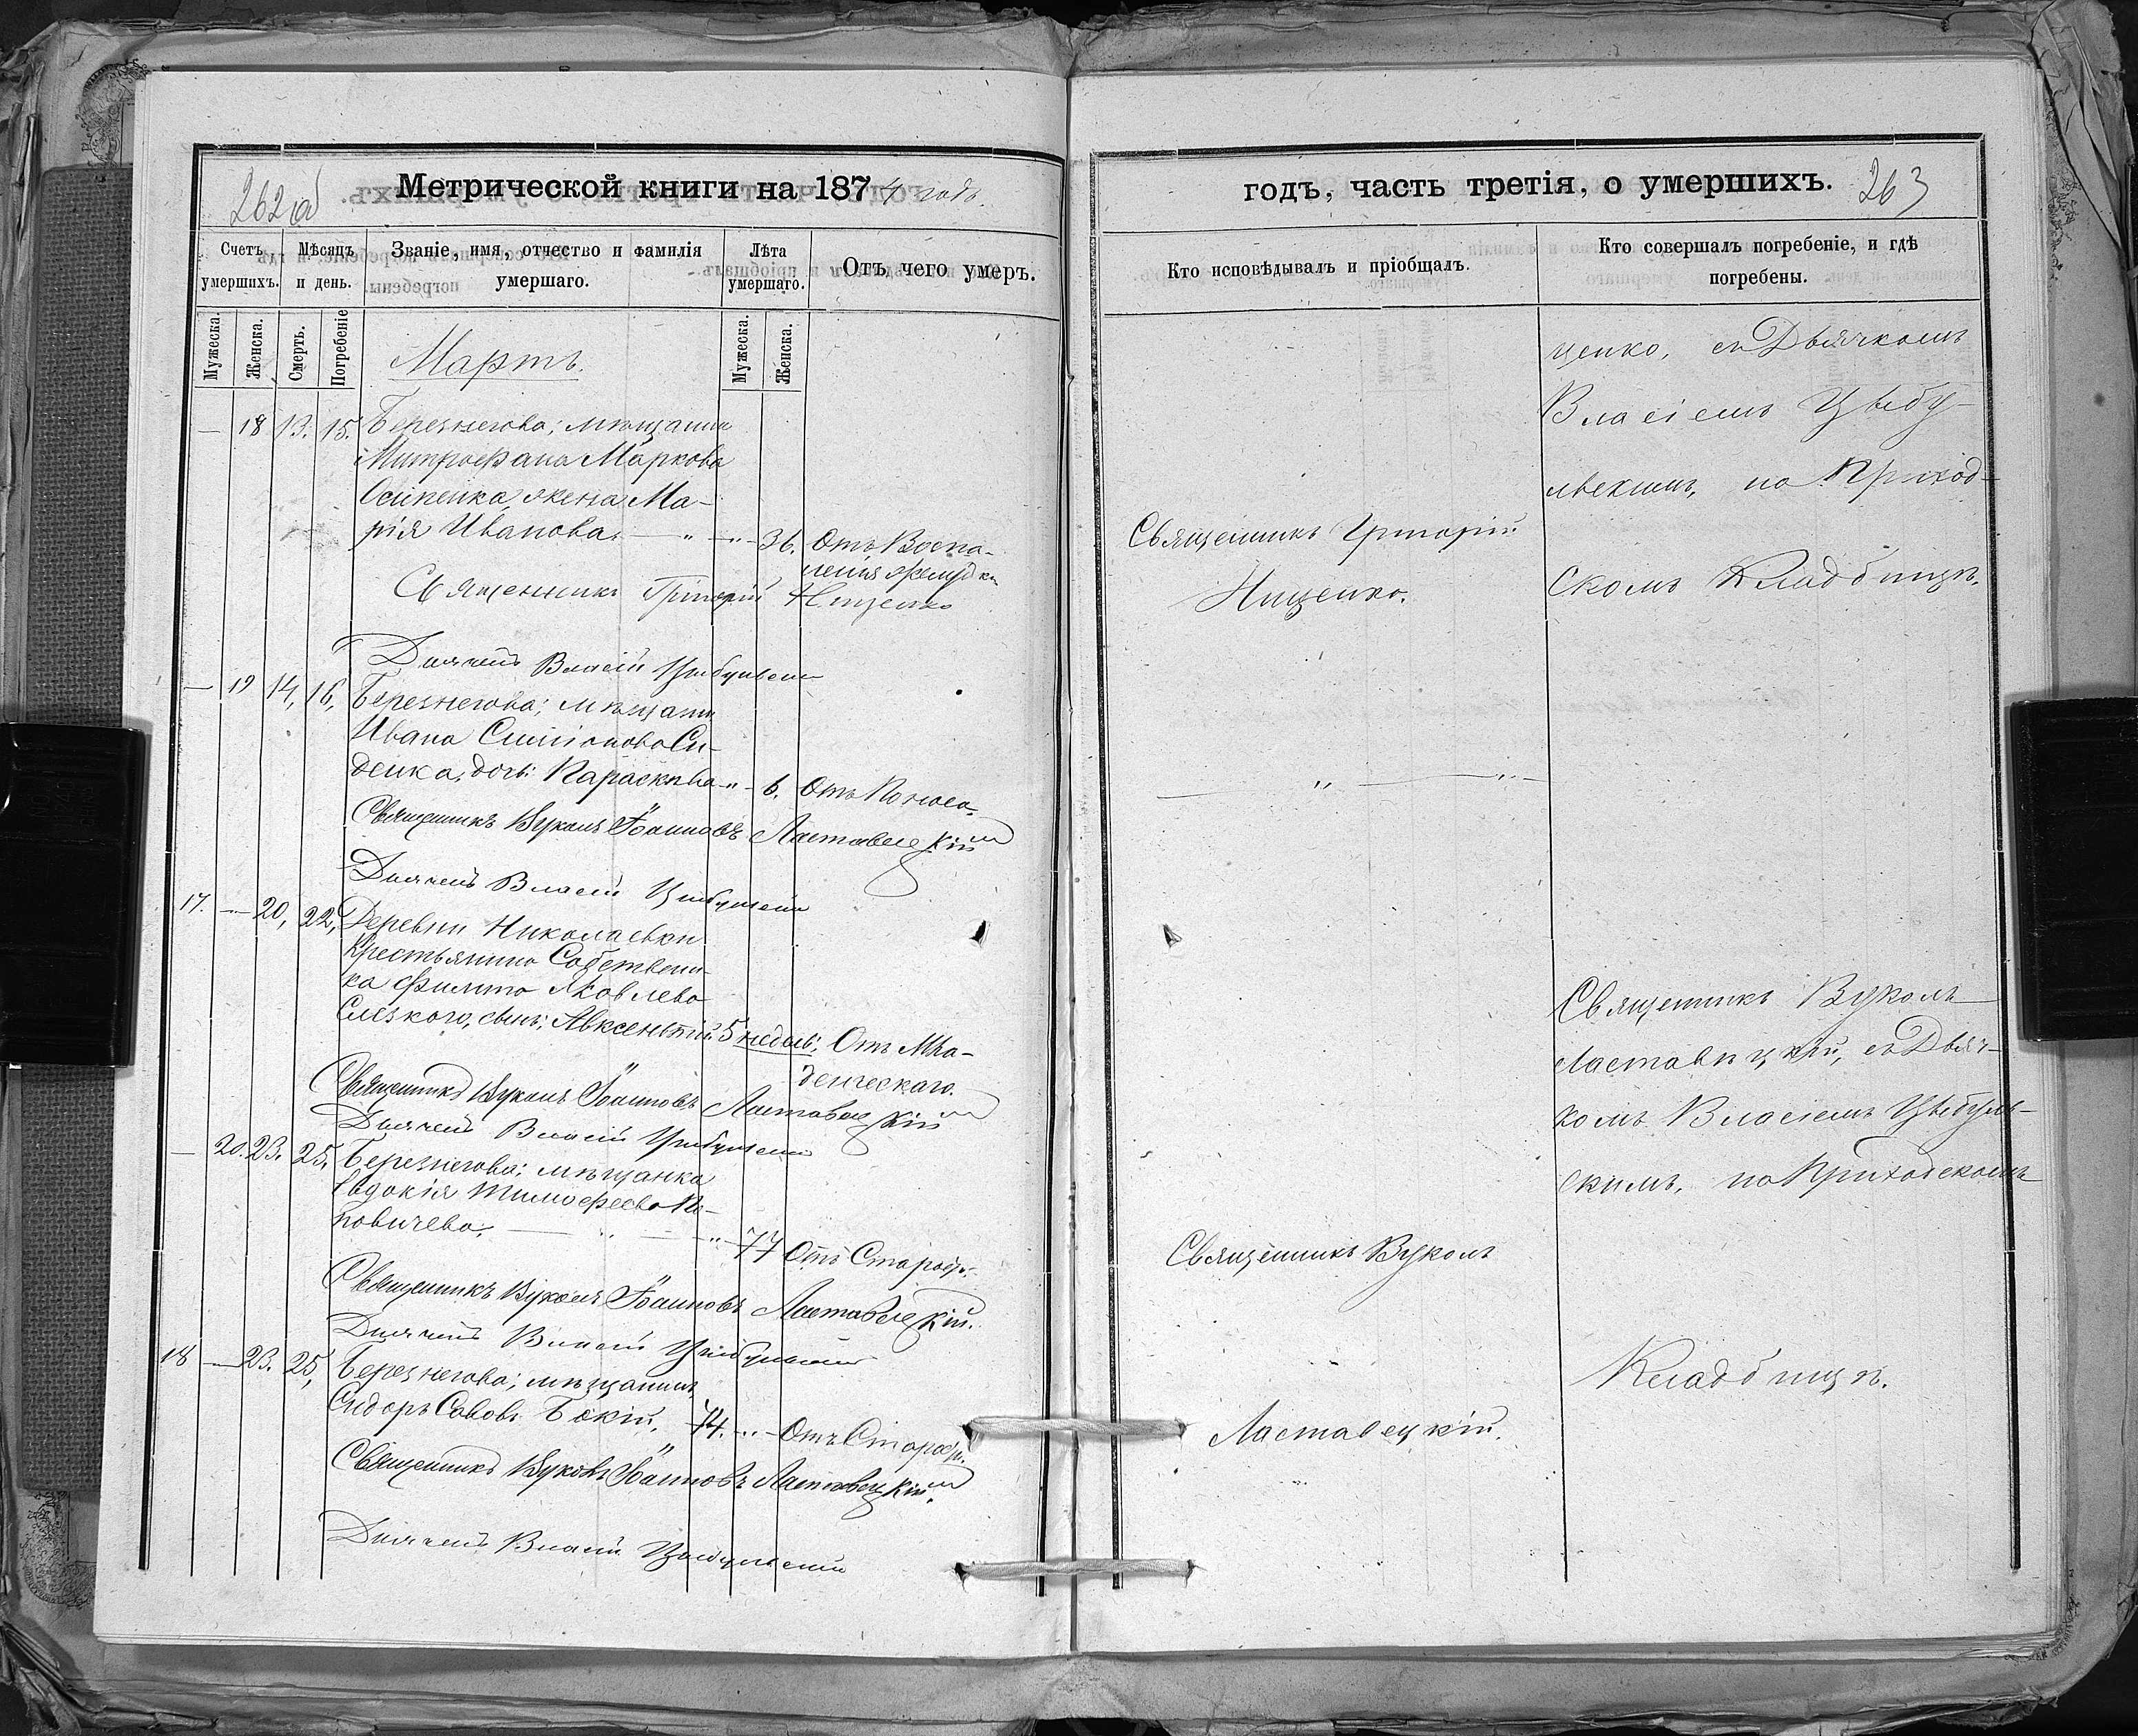 262 об
Метрической книги на 1874 годъ.
Счетъ умершихъ.
Мѣсяцъ и день.
Званіе, имя, отчество и фамилія умершаго.
Лѣта умершаго.
Отъ чего умеръ.
Мужеска.
Женска.
Смерть.
Погребеніе
Мужеска.
Женска.
Мартъ.
— 18 13. 15. Березнегова; мѣщанина
Митрофана Маркова
Осипенка, жена Ма-
рія Иванова. — „ — 36. Отъ Воспа-
ленія желудка
Священникъ Григорій Нищенко
Дьячекъ Власій Цыбульскій
— 19 14, 16, Березнегова; мѣщанина
Ивана
денка, дочь: Параскева „ 6. Отъ Поноса.
Священникъ Вуколъ Іоанновъ Ластовецкій
Дьячекъ Власій Цыбульскій
17. — 20, 22, Деревни Николаевки
Крестьянина Собственни-
ка Филипа Яковлева
сынъ; Авксентій 5 недѣль; Отъ Мла-
денческаго.
Священникъ Вуколъ Іоанновъ Ластовецкій
Дьячекъ Власій Цыбульскій
— 20. 23. 25. Березнегова; мѣщанка
Евдокія Тимофеева По-
повичева; — „ — „ 77 Отъ Старости.
Священникъ Вуколъ Іоанновъ Ластовецкій.
Дьячекъ Власій Цыбульскій
18 — 23. 25, Березнегова; мѣщанинъ
Сидоръ Савовъ Бокій, 74. „ — Отъ Старости.
Священникъ Вуколъ Іоанновъ Ластовецкій.
Дьячекъ Власій Цыбульскій
годъ, часть третія, о умершихъ. 263
Кто исповѣдывалъ и пріобщалъ.
Кто совершалъ погребеніе, и гдѣ погребены.
щенко, съ Дьячкомъ
Власіемъ Цыбу-
льскимъ, на Приход-
Священникъ Григорій
Нищенко.
скомъ Кладбищѣ.
— „ — „ —
Священникъ Вуколъ
Ластавецкій, съ Дьяч-
комъ Власіемъ Цыбуль-
скимъ, на Приходскомъ
Священникъ Вуколъ
Кладбищѣ.
Ластавецкій.